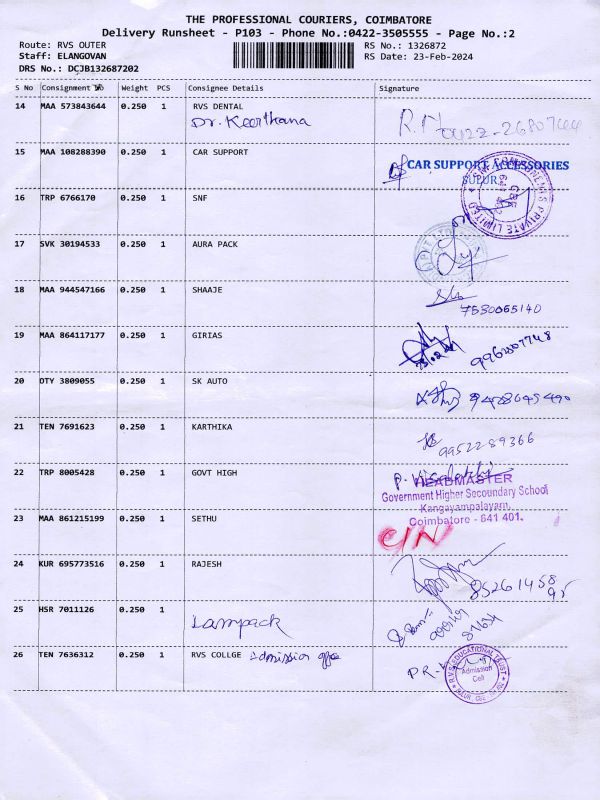 THE PROFESSIONAL COURIERS, COIMBATORE
Delivery Runsheet - P103 - Phone No.:0422-3505555 - Page No.:2
Route: RVS OUTER
RS No.: 1326872
Staff: ELANGOVAN
RS Date: 23-Feb-2024
DRS No.: DCJB132687202
S No Consignment No Weight PCS Consignee Details Signature
14 MAA 573843644 0.250 1 RVS DENTAL
Dr. Keerthana
15 MAA 108288390 0.250 1 CAR SUPPORT
CAR SUPPORT ACCESSORIES
SULUR
16 TRP 6766170 0.250 1 SNF
17 SVK 30194533 0.250 1 AURA PACK
18 MAA 944547166 0.250 1 SHAAJE
7530065140
19 MAA 864117177 0.250 1 GIRIAS
20 DTY 3809055 0.250 1 SK AUTO
21 TEN 7691623 0.250 1 KARTHIKA
9952289366
22 TRP 8005428 0.250 1 GOVT HIGH
HEADMASTER
Government Higher Secoundary School
Kangayampalayam,
Coimbatore - 641 401.
23 MAA 861215199 0.250 1 SETHU
C/N
24 KUR 695773516 0.250 1 RAJESH
25 HSR 7011126 0.250 1
Lampack
26 TEN 7636312 0.250 1 RVS COLLGE Admission office
R.V.S. EDUCATIONAL TRUST
Admission
Cell